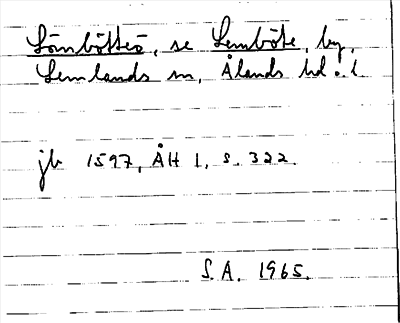 Lömböttes, se Lemböte, by,
Lemlands sn, Ålands hd. L
jb 1597, ÅH 1, s. 322.
S.A. 1965.